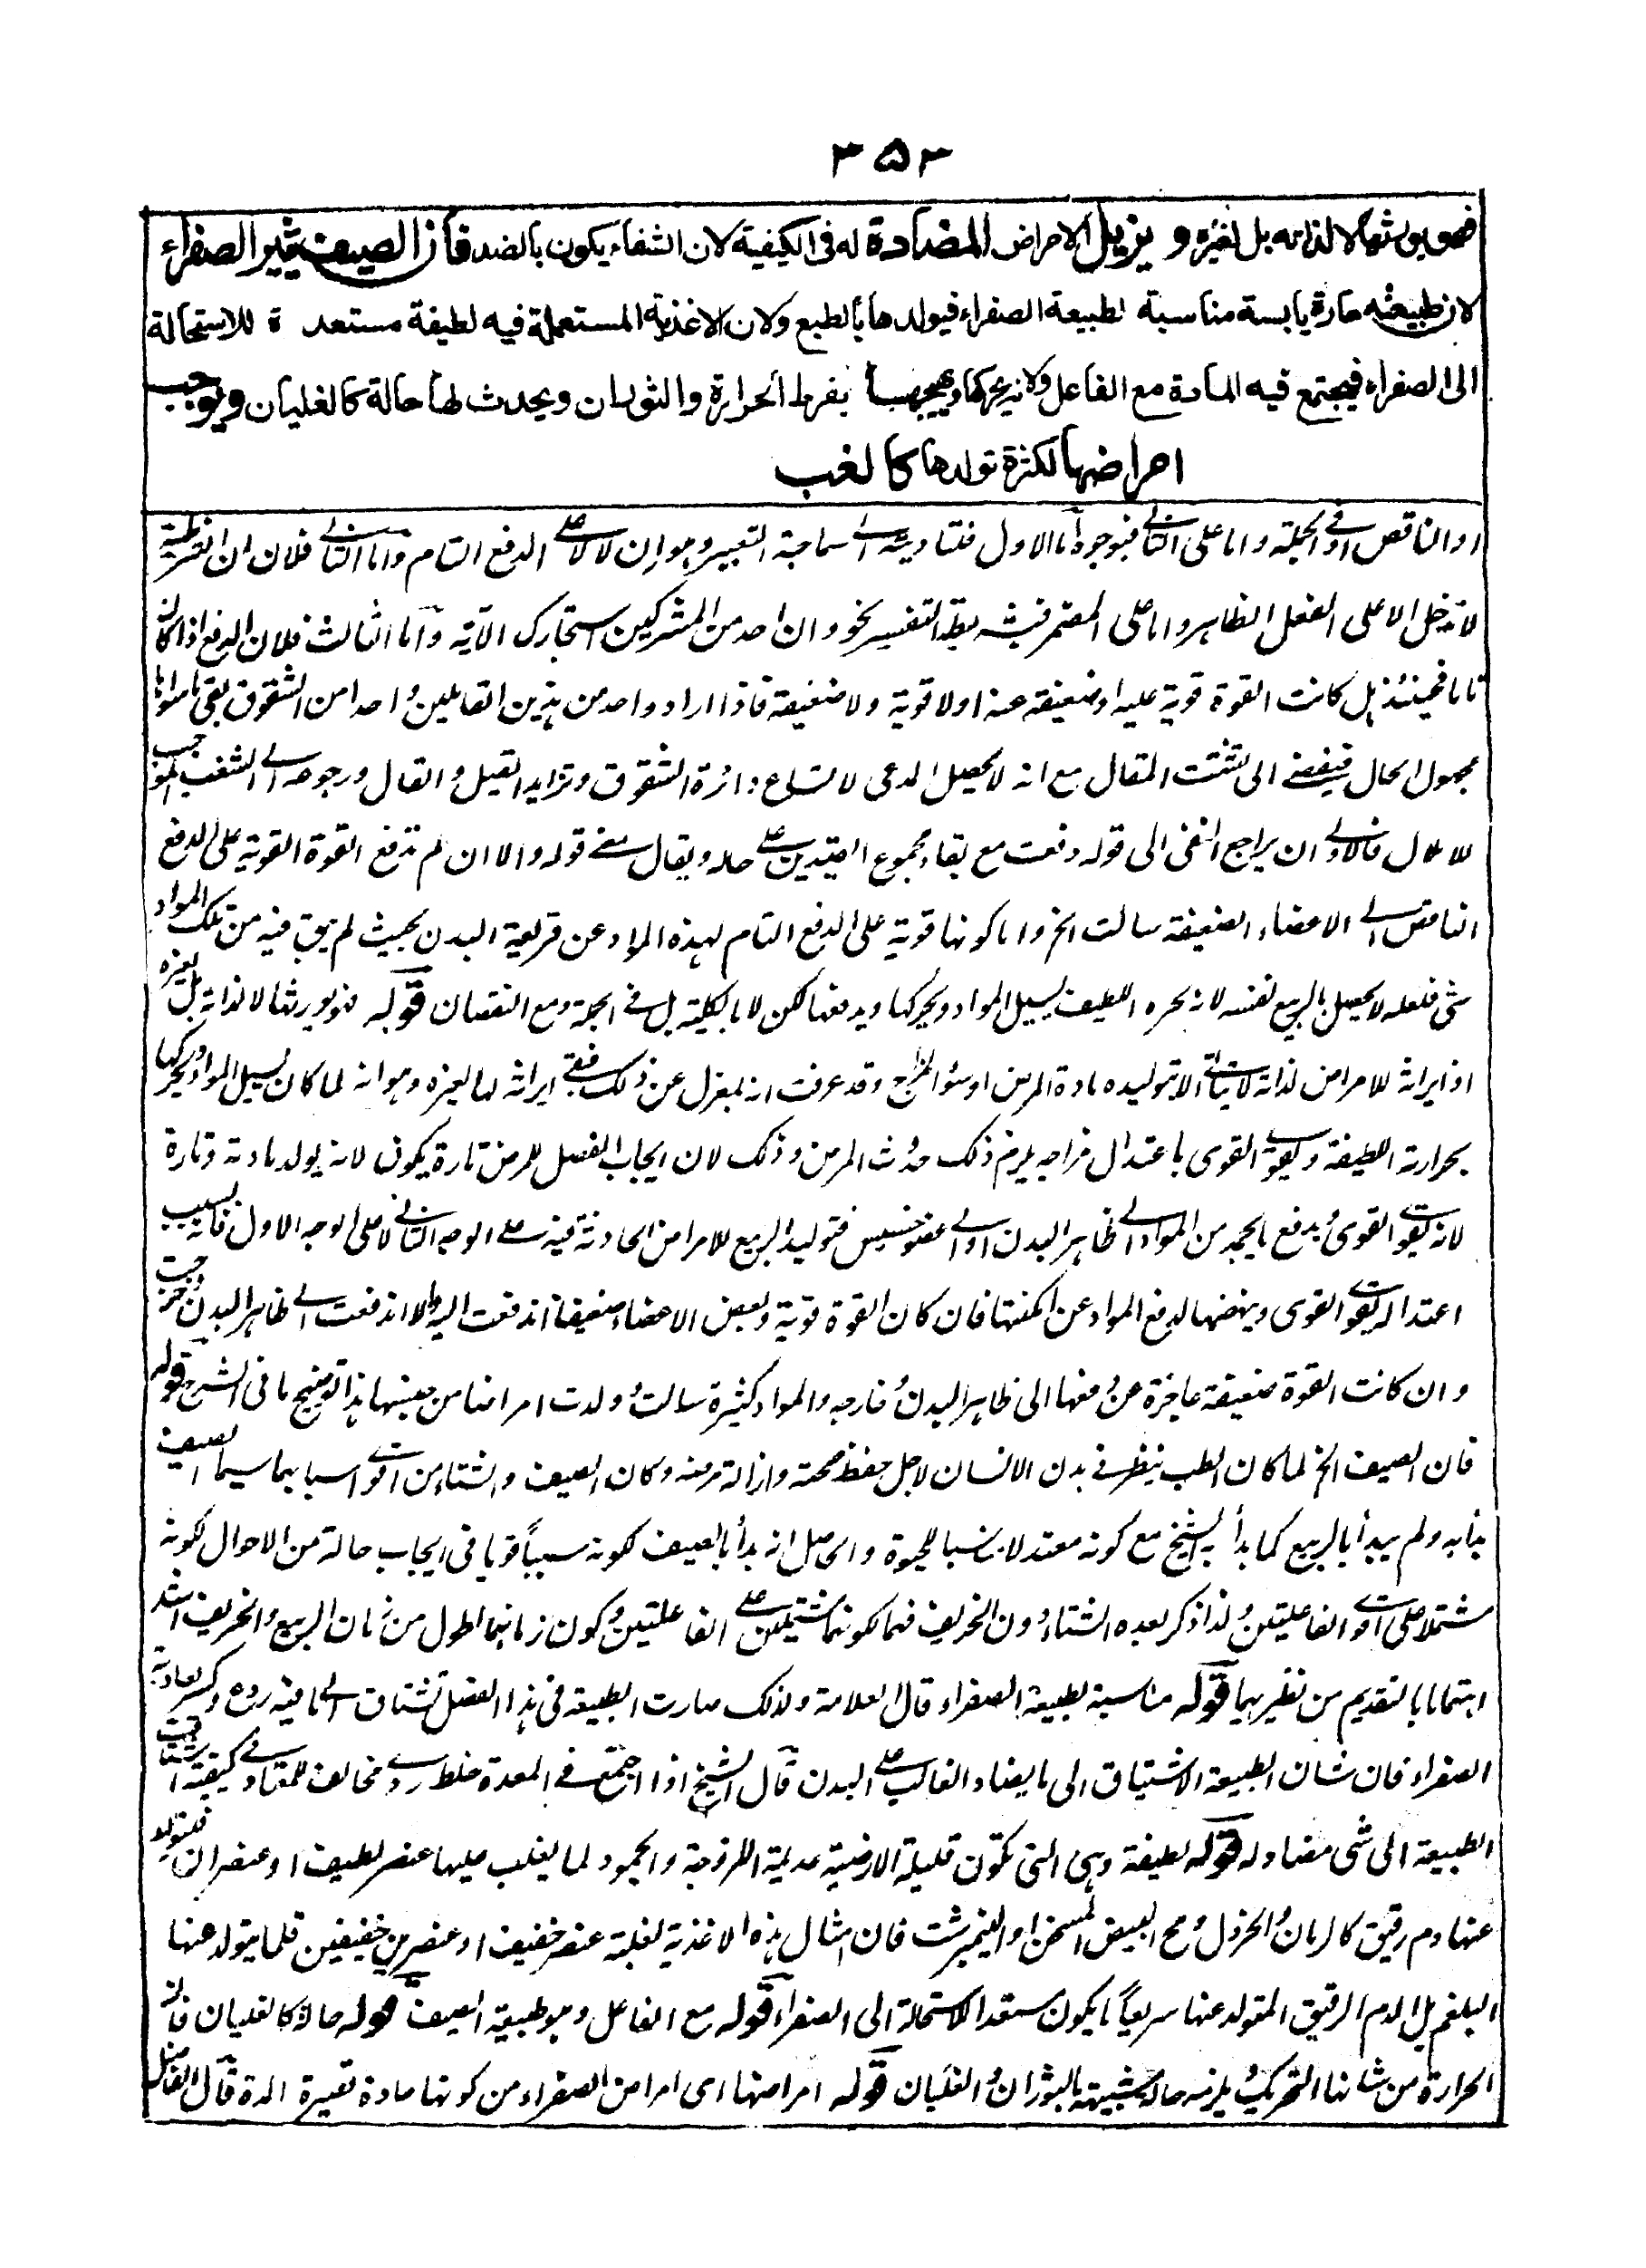 ٣٥٣
فهو يورثها لا لذاته بل لغيره و يزيل الامراض المضادة له فى الكيفية لان الشفاء يكون بالضد فان الصيف يثير الصفراء
لان طبيعته حارة يابسة مناسبة لطبيعة الصفراء فيولدها بالطبع ولان الاغذية المستعملة فيه لطيفة مستعدة للاستحالة
الى الصفراء فيجتمع فيه المادة مع الفاعل ولانه يحركها و يهيجها بفرط الحرارة والثوران ويحدث لها حالة كالغليان ويوجب
امراضها لكثرة تولدها كالغب
او الناقص او فى الجملة واما على الثانى فبوجوه اما الاول فلتاديته الى سماجة التعبير وهو ان لا لا على الدفع التام واما الثانى فلان ان الشرطية
لا تدخل الا على الفعل الظاهر واما على المضمر فبشريطة التفسير نحو وان احد من المشركين استجارك الآية واما الثالث فلان الدفع اذا كان
تاما فحينئذ هل كانت القوة قوية عليه او ضعيفة عنه او لا قوية ولا ضعيفة فاذا اراد واحد من هذين القائلين واحدا من الشقوق بقى ما سواها
مجهول الحال فيفضى الى تشتت المقال مع انه لا يحصل المدعى لاتساع دائرة الشقوق وتزايد القيل والقال ورجوعه الى الشغب الموجب
للاملال فالاولى ان يراجع النفى الى قوله دفعت مع بقاء مجموع القيدين على حاله ويقال معنى قوله والا ان لم تدفع القوة القوية على الدفع
الناقص الى الاعضاء الضعيفة سالت الخ واما كونها قوية على الدفع التام لهذه المواد عن قريعة البدن بحيث لم يبق فيه من تلك المواد
شئ فلعله لا يحصل بالربيع نفسه لانه بحره اللطيف يسيل المواد ويحركها ويدفعها لكن لا بالكلية بل فى الجملة ومع النقصان قوله فهو يورثها لا لذاته بل لغيره
اذ ايراثه للامراض لذاته لا يتاتى الا بتوليده مادة المرض او سوء المزاج وقد عرفت انه بمعزل عن ذلك فبقى ايراثه لها لغيره وهو انه لما كان يسيل المواد ويحركها
بحرارته اللطيفة ويقوى القوى باعتدال مزاجه يلزم ذلك حدوث المرض وذلك لان ايجاب الفصل للمرض تارة يكون لانه يولد مادته وتارة
لانه يقوى القوى ويدفع ما يجد من المواد الى ظاهر البدن او الى عضو خسيس فتوليد الربيع للامراض الحادثة فيه على الوجه الثانى لا على الوجه الاول فانه بسبب
اعتداله يقوى القوى وينهضها لدفع المواد عن امكنتها فان كان القوة قوية وبعض الاعضاء ضعيفا اندفعت اليه والا اندفعت الى ظاهر البدن وخرجت
وان كانت القوة ضعيفة عاجزة عن دفعها الى ظاهر البدن وخارجه والمواد كثيرة سالت وولدت امراضا من جنسها هذا توضيح ما فى الشرح قوله
فان الصيف الخ لما كان الطب ينظر فى بدن الانسان لاجل حفظ صحته وازالة مرضه وكان الصيف والشتاء من اقوى اسبابهما سيما الصيف
بدأ به ولم يبدأ بالربيع كما بدأ به الشيخ مع كونه معتدلا مناسبا للحيوة والحاصل انه بدأ بالصيف لكونه سببا قويا فى ايجاب حالة من الاحوال لكونه
مشتملا على اقوى الفاعليتين ولذا ذكر بعده الشتاء دون الخريف فهما لكونهما مشتملين على الفاعليتين وكون زمانهما اطول من زمان الربيع والخريف اشد
اهتماما بالتقديم من نظيريهما قوله مناسبة لطبيعة الصفراء قال العلامة ولذلك صارت الطبيعة فى هذا الفصل تشتاق الى ما فيه برودة وكسر لعادية
الصفراء فان شان الطبيعة الاشتياق الى ما يضاد الغالب على البدن قال الشيخ اذا اجتمع فى المعدة خلط ردى مخالف للمعتاد فى كيفيته اشتاقت
الطبيعة الى شئ مضاد له قوله لطيفة وهى التى تكون قليلة الارضية عديمة اللزوجة والجمود لما يغلب عليها عنصر لطيف او عنصران فيتولد
عنها دم رقيق كالرمان والخردل ومح البيض المسخن او النيمبرشت فان امثال هذه الاغذية لغلبة عنصر خفيف او عنصرين خفيفين قلما يتولد عنها
البلغم بل الدم الرقيق المتولد عنها سريعا ما يكون مستعدا للاستحالة الى الصفراء قوله مع الفاعل وهو طبيعة الصيف قوله حالة كالغليان فان
الحرارة من شانها التحريك ويلزمه حالة شبيهة بالثوران والغليان قوله امراضها اى امراض الصفراء من كونها حادة قصيرة المدة قال الفاضل